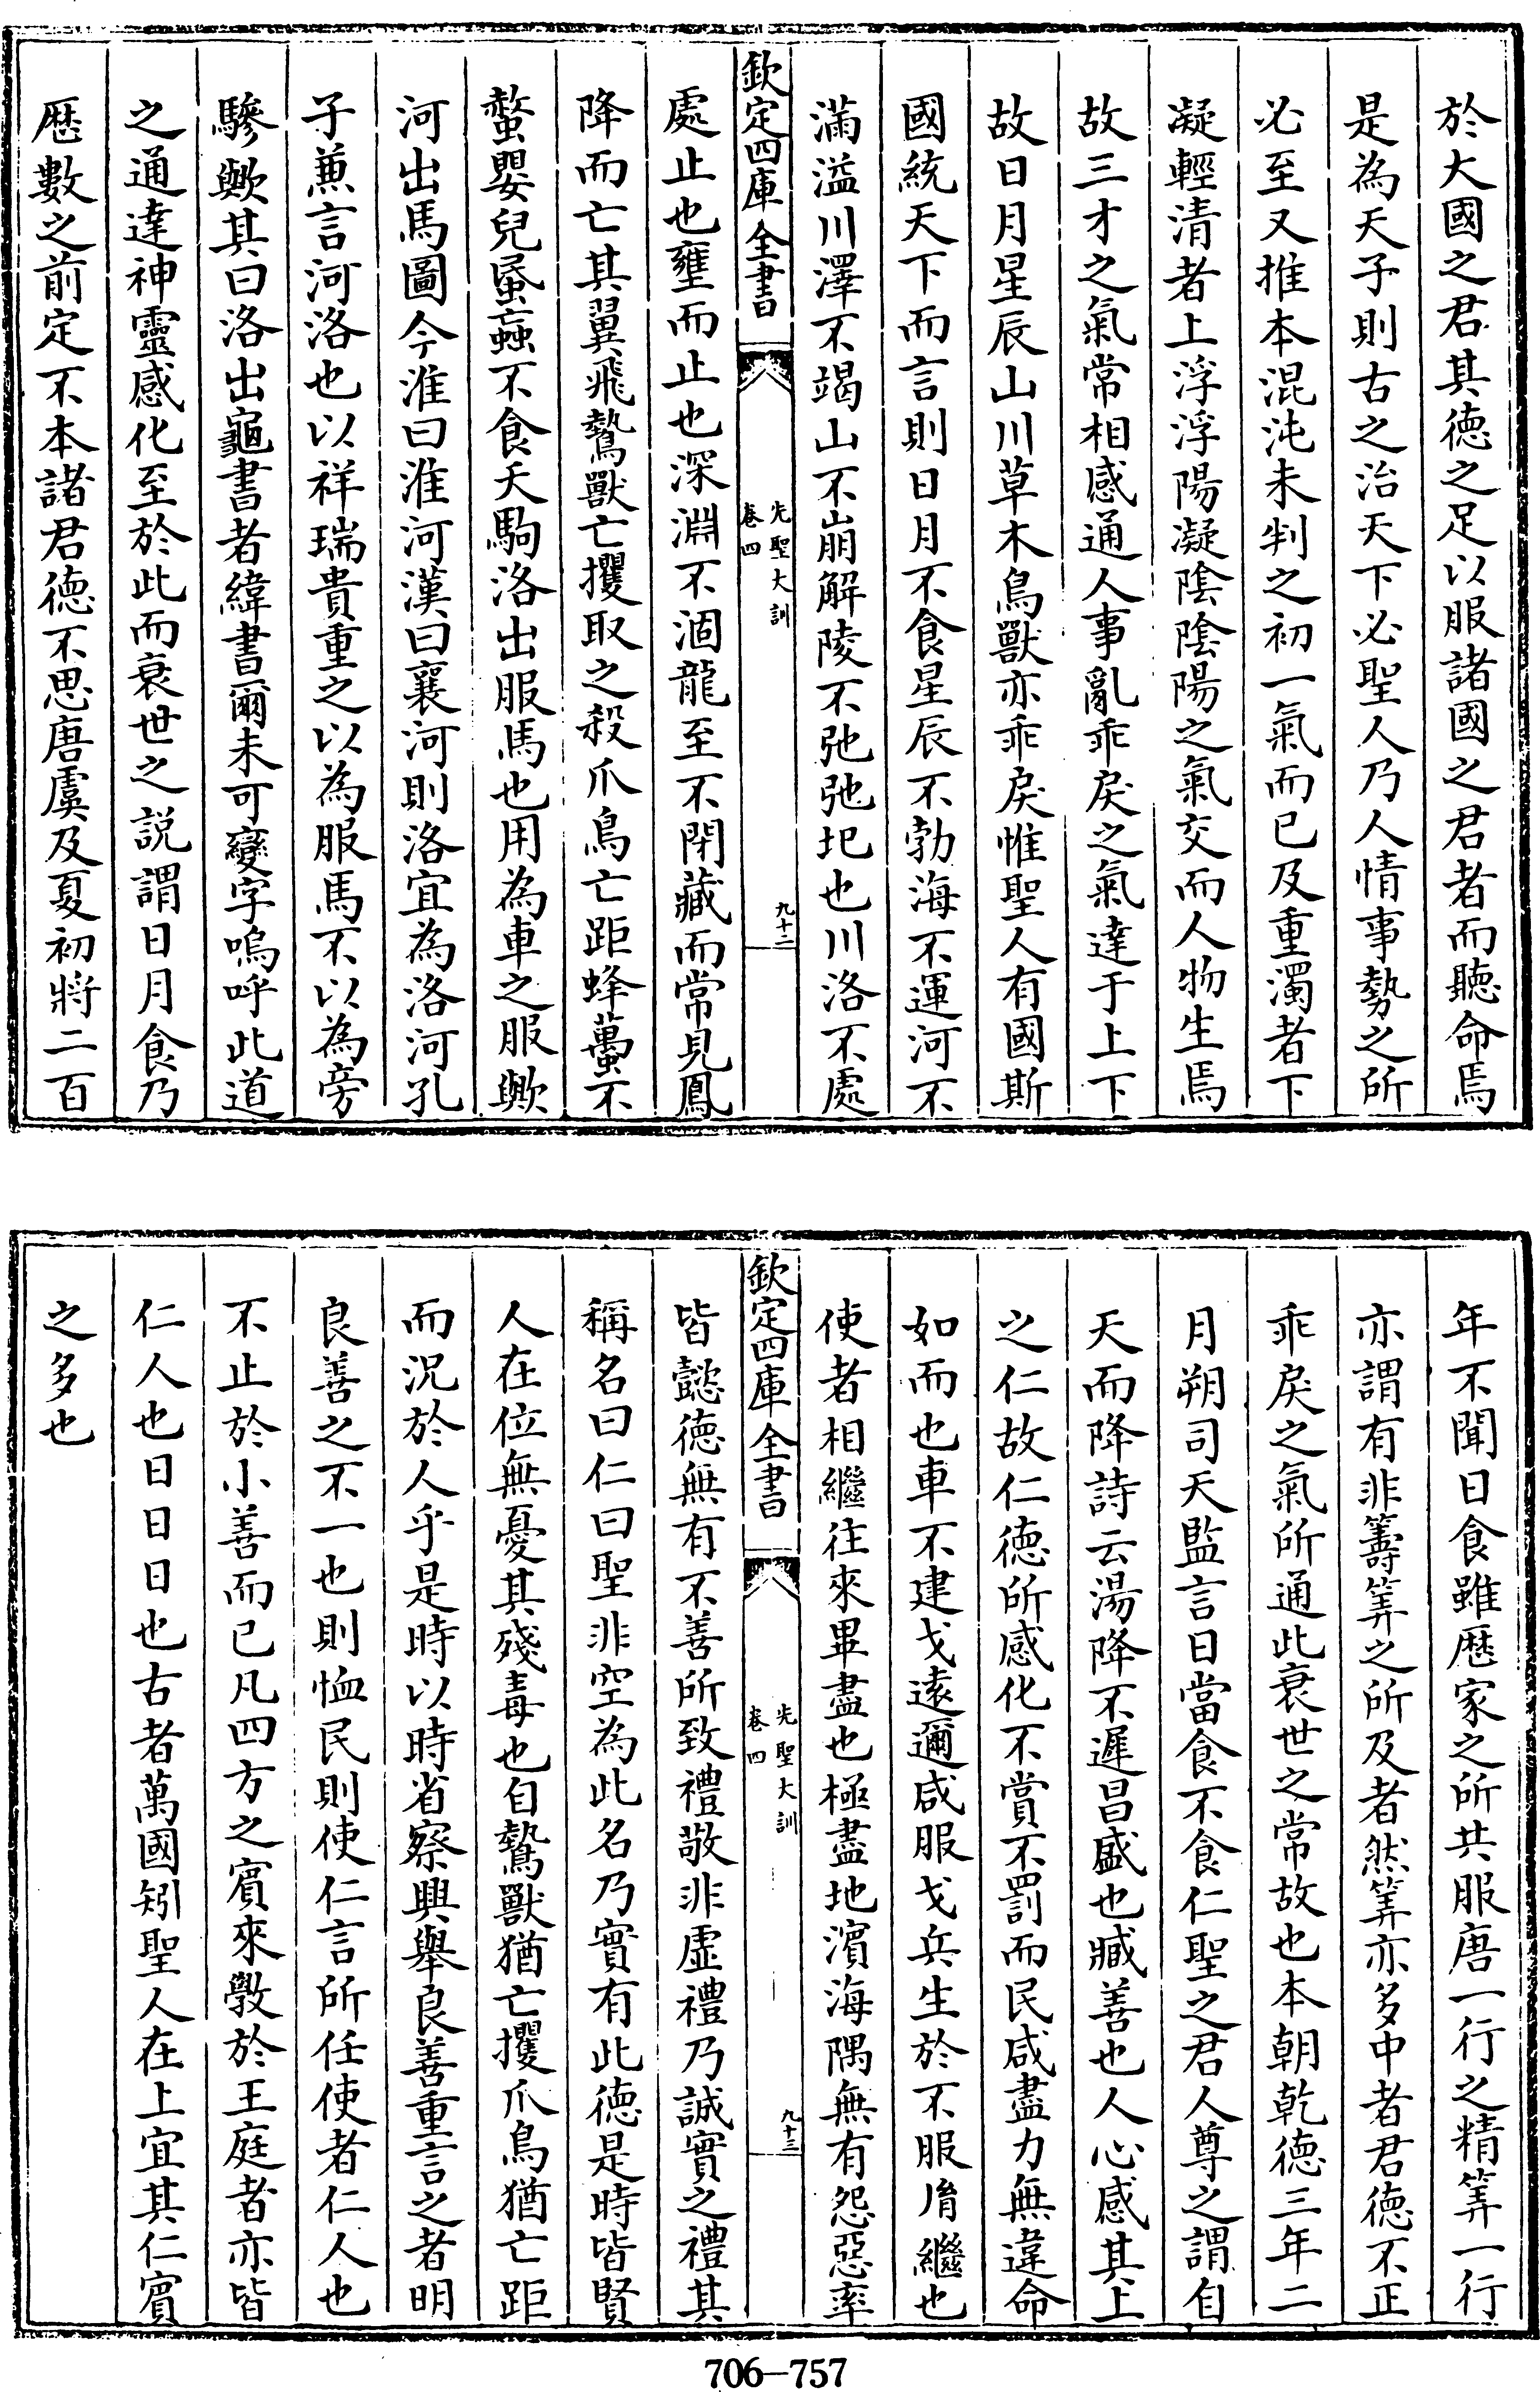 於大國之君其徳之足以服諸國之君者而聽命焉
是為天子則古之治天下必聖人乃人情事勢之所
必至又推本混沌未判之初一氣而已及重濁者下
凝輕清者上浮浮陽凝陰陰陽之氣交而人物生焉
故三才之氣常相感通人事亂乖戾之氣達于上下
故日月星辰山川草木鳥獸亦乖戾惟聖人有國斯
國統天下而言則日月不食星辰不勃海不運河不
滿溢川澤不竭山不崩解陵不弛弛圮也川洛不處
欽定四庫全書
先聖大訓
卷四
九十二
處止也壅而止也深淵不涸龍至不閉藏而常見鳳
降而亡其翼飛鷙獸亡攫取之殺爪鳥亡距蜂蠆不
螫嬰兒蟁蝱不食夭駒洛出服馬也用為車之服歟
河出馬圖今淮曰淮河漢曰襄河則洛宜為洛河孔
子兼言河洛也以祥瑞貴重之以為服馬不以為旁
驂歟其曰洛出龜書者緯書爾未可變字嗚呼此道
之通達神靈感化至於此而衰世之説謂日月食乃
厯數之前定不本諸君徳不思唐虞及夏初將二百
年不聞日食雖厯家之所共服唐一行之精筭一行
亦謂有非籌筭之所及者然筭亦多中者君徳不正
乖戾之氣所通此衰世之常故也本朝乾徳三年二
月朔司天監言日當食不食仁聖之君人尊之謂自
天而降詩云湯降不遲昌盛也臧善也人心感其上
之仁故仁徳所感化不賞不罰而民咸盡力無違命
如而也車不建戈遠邇咸服戈兵生於不服胤繼也
使者相繼往來畢盡也極盡地濵海隅無有怨惡率
欽定四庫全書
先聖大訓
卷四
九十三
皆懿徳無有不善所致禮敬非虚禮乃誠實之禮其
稱名曰仁曰聖非空為此名乃實有此徳是時皆賢
人在位無憂其殘毒也自鷙獸猶亡攫爪鳥猶亡距
而況於人乎是時以時省察興舉良善重言之者明
良善之不一也則恤民則使仁言所任使者仁人也
不止於小善而已凡四方之賓來斆於王庭者亦皆
仁人也日日日也古者萬國矧聖人在上宜其仁賓
之多也
706—757